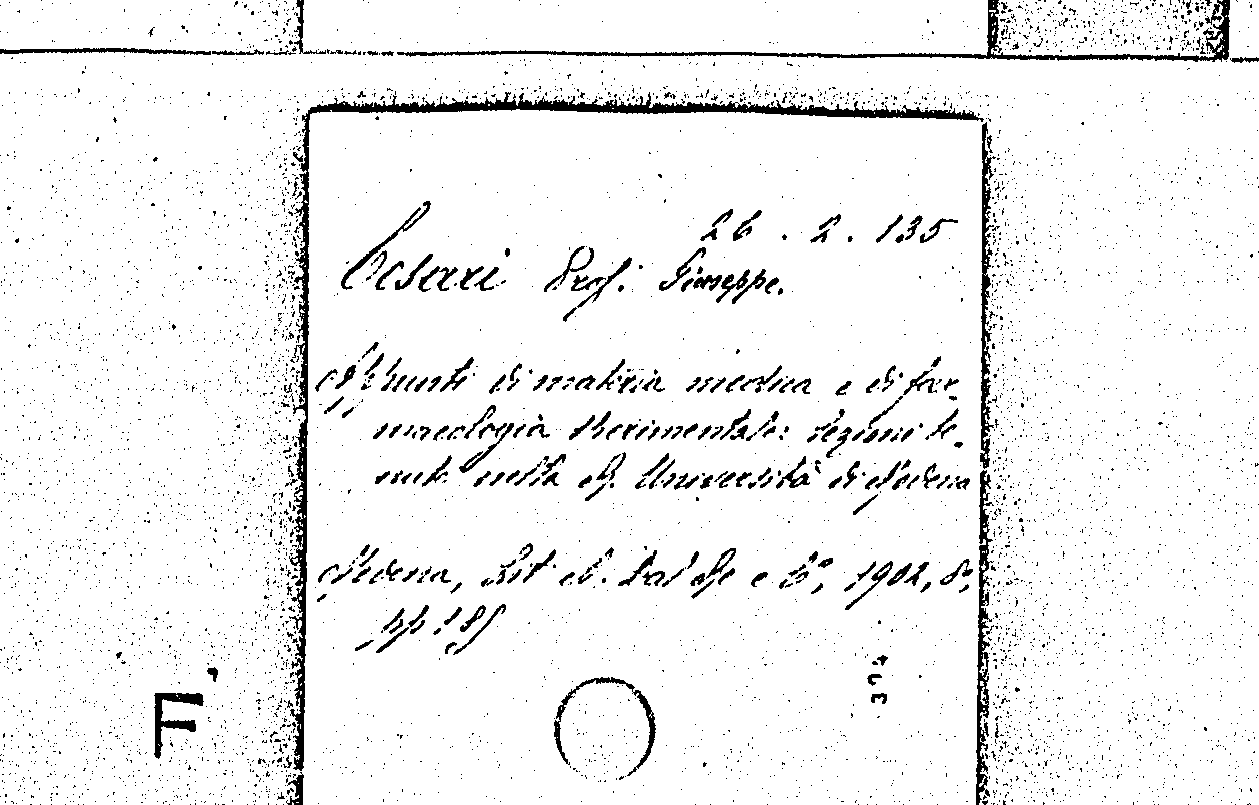 26 . 2 . 135
Cesari Prof. Giuseppe.
Appunti di materia medica e di far-
macologia sperimentale: lezioni te-
nute nella R. Università di Modena
Modena, Lit. Dal Re e Cº, 1902, 8º,
pp 185
374
F